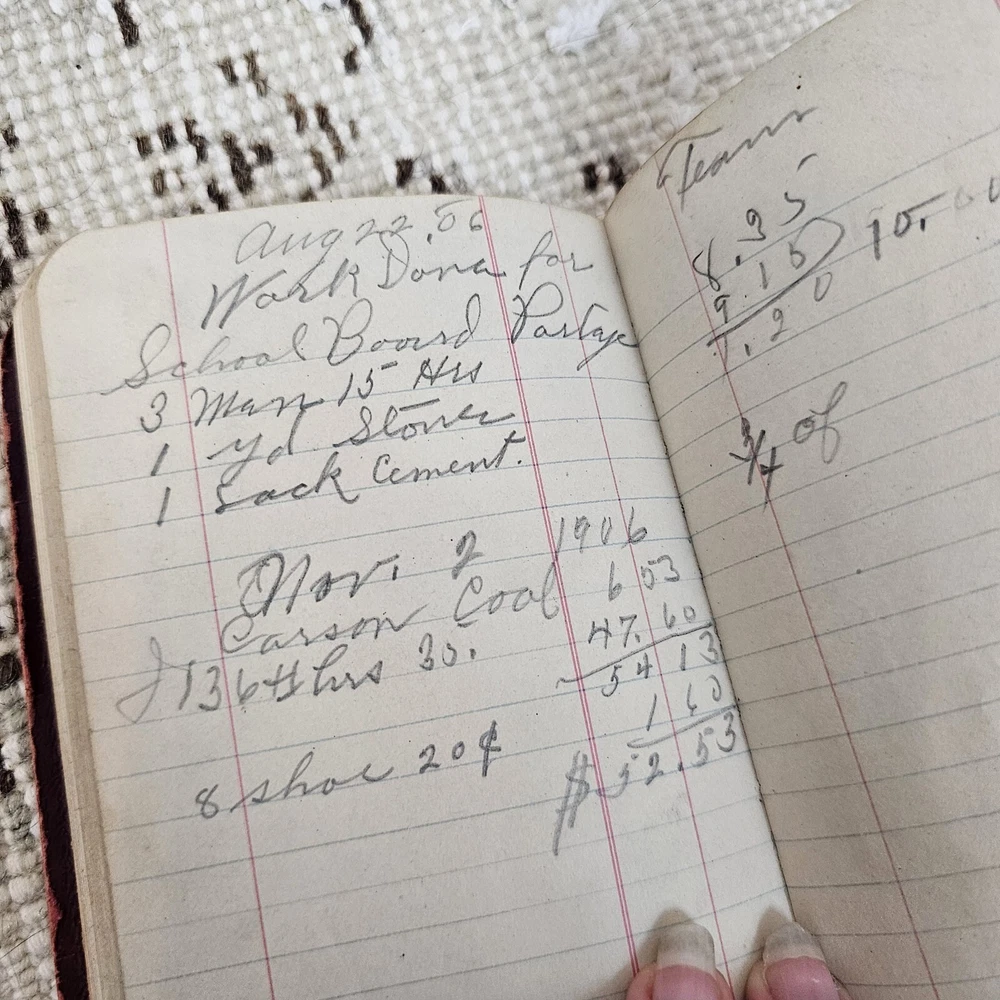 Aug 22, 06
Work Done for
School Board Portage
3 Men 15 Hrs
1 yd Stone
1 Sack Cement.
Nov. 2 1906
Carson Coal 6 53
136 hrs 35. 47. 60
54 13
8 shoe 20¢ 1 60
$ 52.53
Team
8.35
9.15
10.
3/4 of